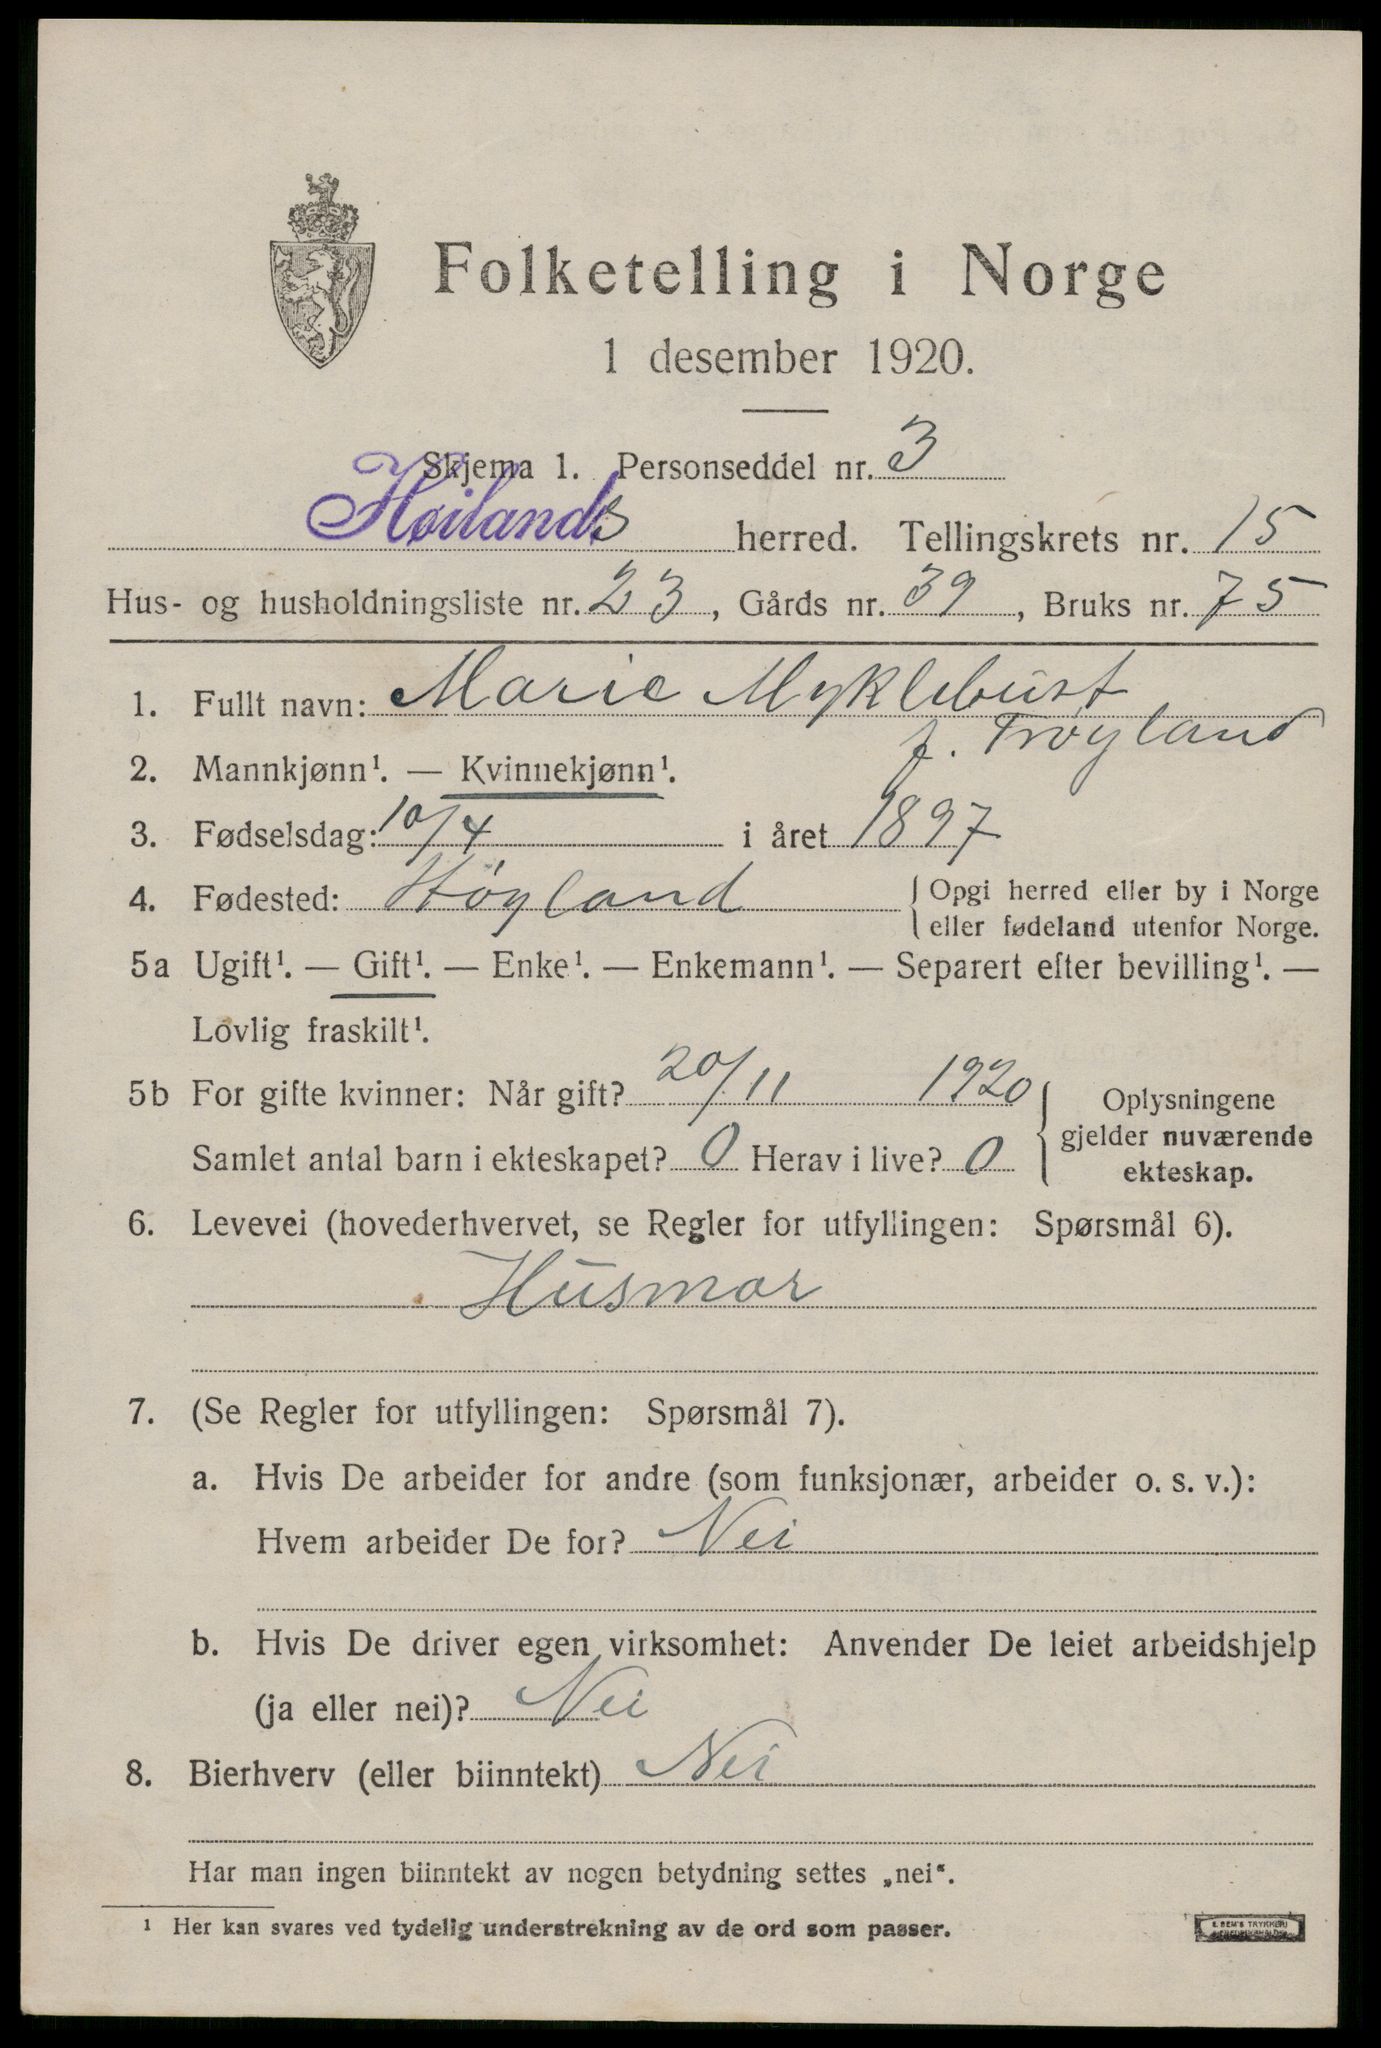 Folketelling i Norge
1 desember 1920.
Skjema 1. Personseddel nr. 3
Høilands herred. Tellingskrets nr. 15
Hus- og husholdningsliste nr. 23, Gårds nr. 39, Bruks nr. 75
1. Fullt navn: Marie Myklebust
f. Trøyland
2. Mannkjønn¹. — Kvinnekjønn¹.
3. Fødselsdag: 10/4 i året 1897
4. Fødested: Høyland { Opgi herred eller by i Norge
eller fødeland utenfor Norge.
5a Ugift¹. — Gift¹. — Enke¹. — Enkemann¹. — Separert efter bevilling¹. —
Lovlig fraskilt¹.
5b For gifte kvinner: Når gift? 20/11 1920
Samlet antal barn i ekteskapet? 0 Herav i live? 0
Oplysningene
gjelder nuværende
ekteskap.
6. Levevei (hovederhvervet, se Regler for utfyllingen: Spørsmål 6).
Husmor
7. (Se Regler for utfyllingen: Spørsmål 7).
a. Hvis De arbeider for andre (som funksjonær, arbeider o. s. v.):
Hvem arbeider De for? Nei
b. Hvis De driver egen virksomhet: Anvender De leiet arbeidshjelp
(ja eller nei)? Nei
8. Bierhverv (eller biinntekt) Nei
Har man ingen biinntekt av nogen betydning settes „nei“.
¹ Her kan svares ved tydelig understrekning av de ord som passer.